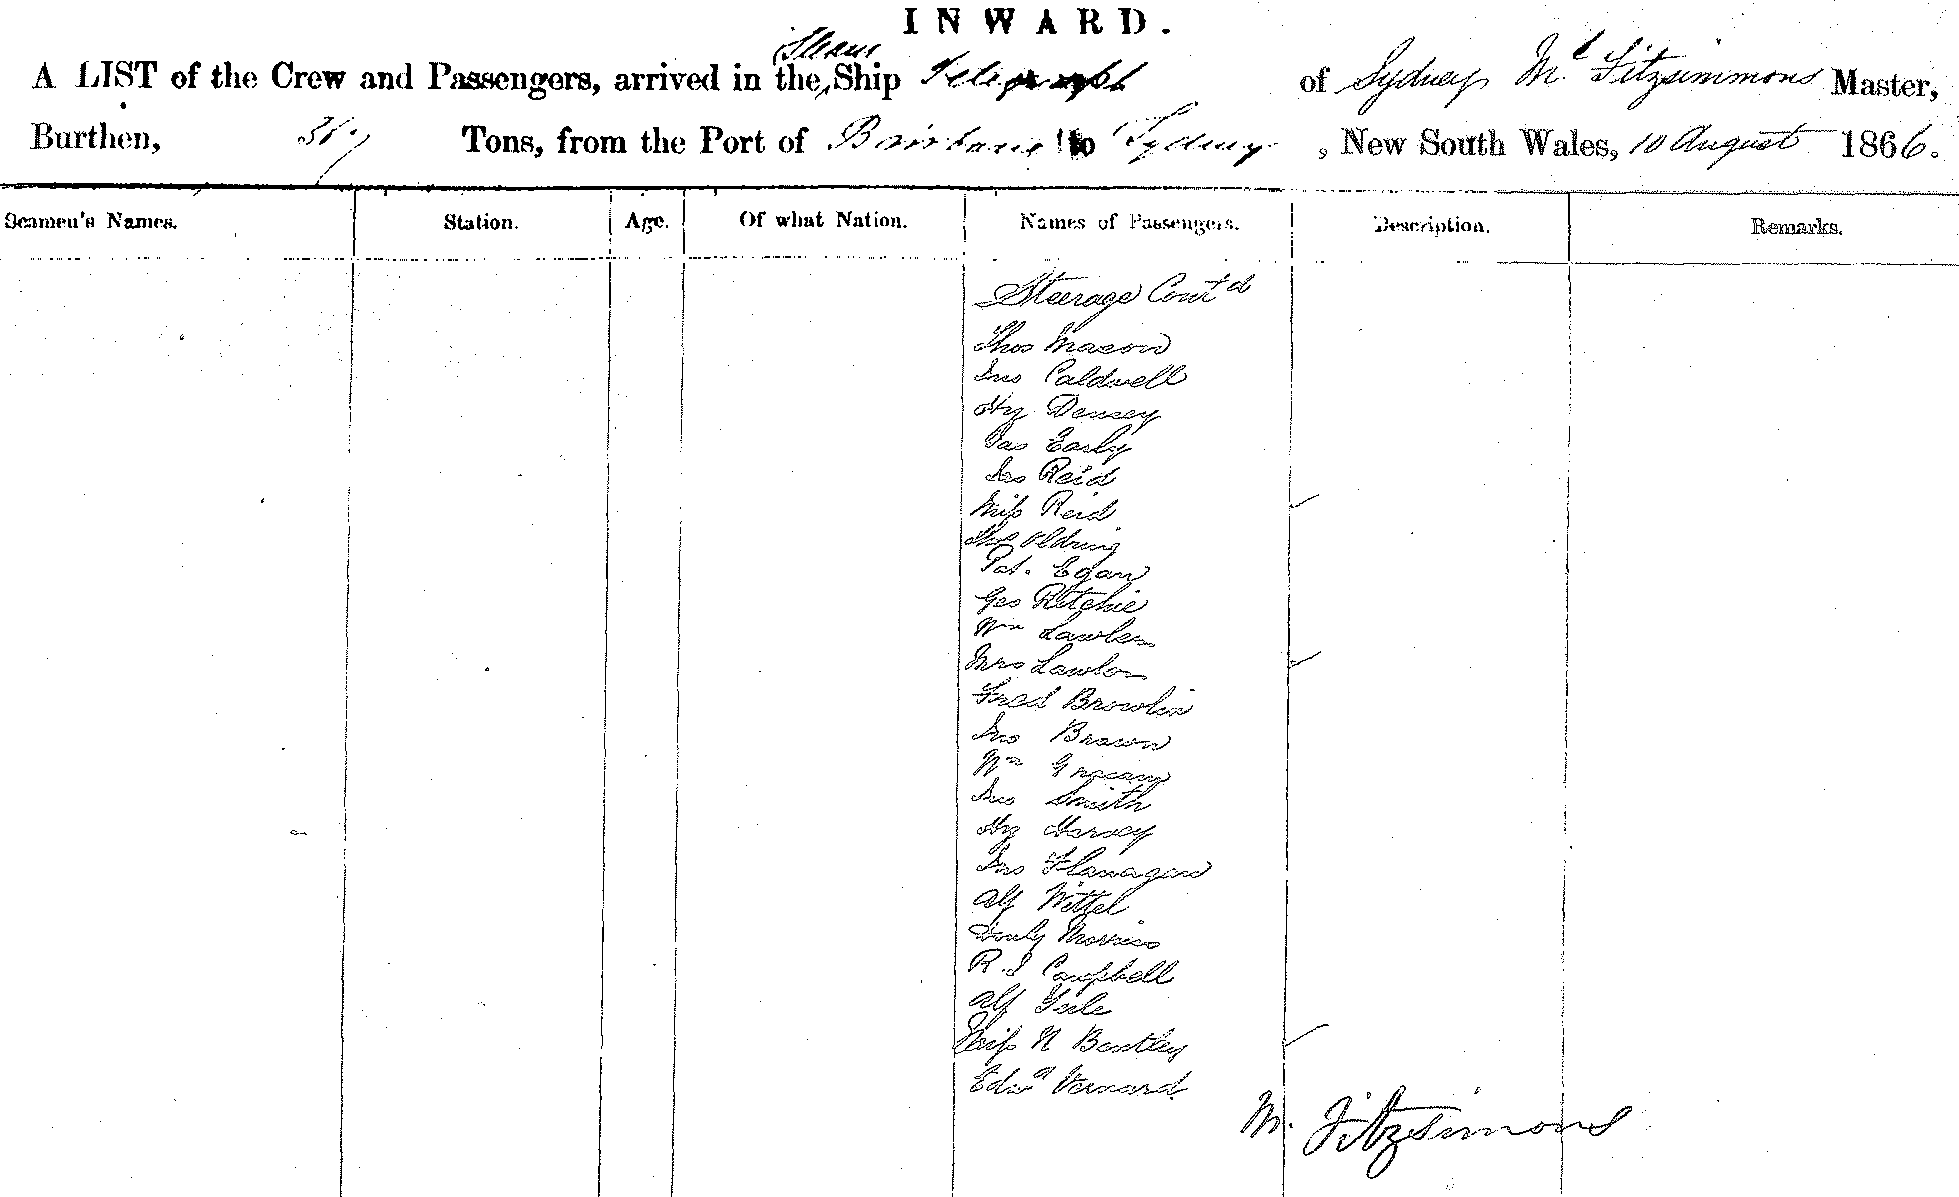 INWARD.
Steam
A LIST of the Crew and Passengers, arrived in the Ship Telegraph of Sydney Ml Fitzsimmons Master,
Burthen, 367 Tons, from the Port of Brisbane to Sydney, New South Wales, 10 August 1866.
Seamen's Names. Station. Age. Of what Nation. Names of Passengers. Description. Remarks.
Steerage Cont'd
Thos Mason
Jno Caldwell
Hy Dewsey
Jas Early
Jno Reid
Miss Reid
Oldring
Pat. Egan
Geo Ritchie
Wm Lawlor
Mrs Lawlor
Fred Browlin
Jno Brown
Wm
Jno Smith
Hy Hersey
Jno Flanagan
Alf Wittel
Morris
R. J Campbell
Alf
Miss N Bentley
Edwd Vernard.
M. Fitzsimons